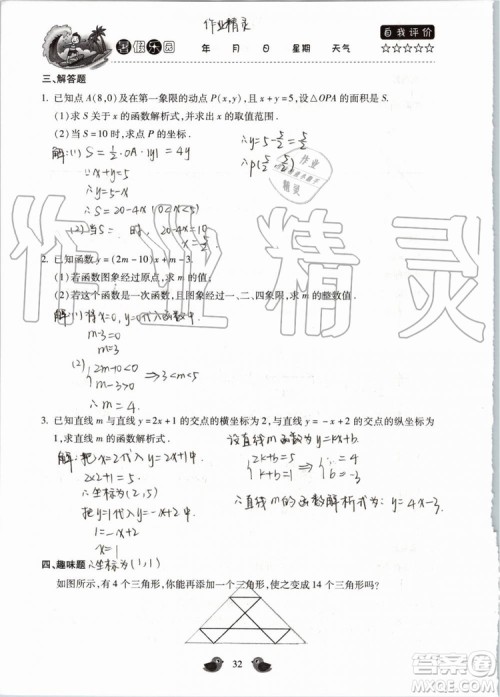 作业精灵
暑假乐园 年 月 日 星期 天气 自我评价
☆☆☆☆☆
三、解答题
1. 已知点 A(8,0)及在第一象限的动点 P(x,y),且 x+y=5,设△OPA 的面积是 S.
(1)求 S 关于 x 的函数解析式,并求出 x 的取值范围.
(2)当 S=10 时,求点 P 的坐标.
解:(1) S=1/2·OA·|y|=4y
∵x+y=5
∴y=5-x
∴S=20-4x(0<x<5)
(2)当S= 时, 20-4x=10
x=5/2
∴y=5-5/2=5/2
∴P(5/2,5/2)
2. 已知函数 y=(2m-10)x+m-3.
(1)若函数图象经过原点,求 m 的值.
(2)若这个函数是一次函数,且图象经过一、二、四象限,求 m 的整数值.
解:(1)将x=0, y=0代入函数中
m-3=0
m=3
(2)
{2m-10<0
m-3>0 ⇒3<m<5
∴m=4
3. 已知直线 m 与直线 y=2x+1 的交点的横坐标为 2,与直线 y=-x+2 的交点的纵坐标为
1,求直线 m 的函数解析式.
解:把x=2代入y=2x+1中
2x2+1=5
∴坐标为(2,5)
把y=1代入y=-x+2中
1=-x+2
x=1
∴坐标为(1,1)
设直线m函数为y=kx+b.
{2k+b=5
k+b=1 ⇒{k=4
b=-3
∴直线m的函数解析式y=4x-3
四、趣味题
如图所示,有 4 个三角形,你能再添加一个三角形,使之变成 14 个三角形吗?
32
作业精灵
答案圈
MXQE.COM